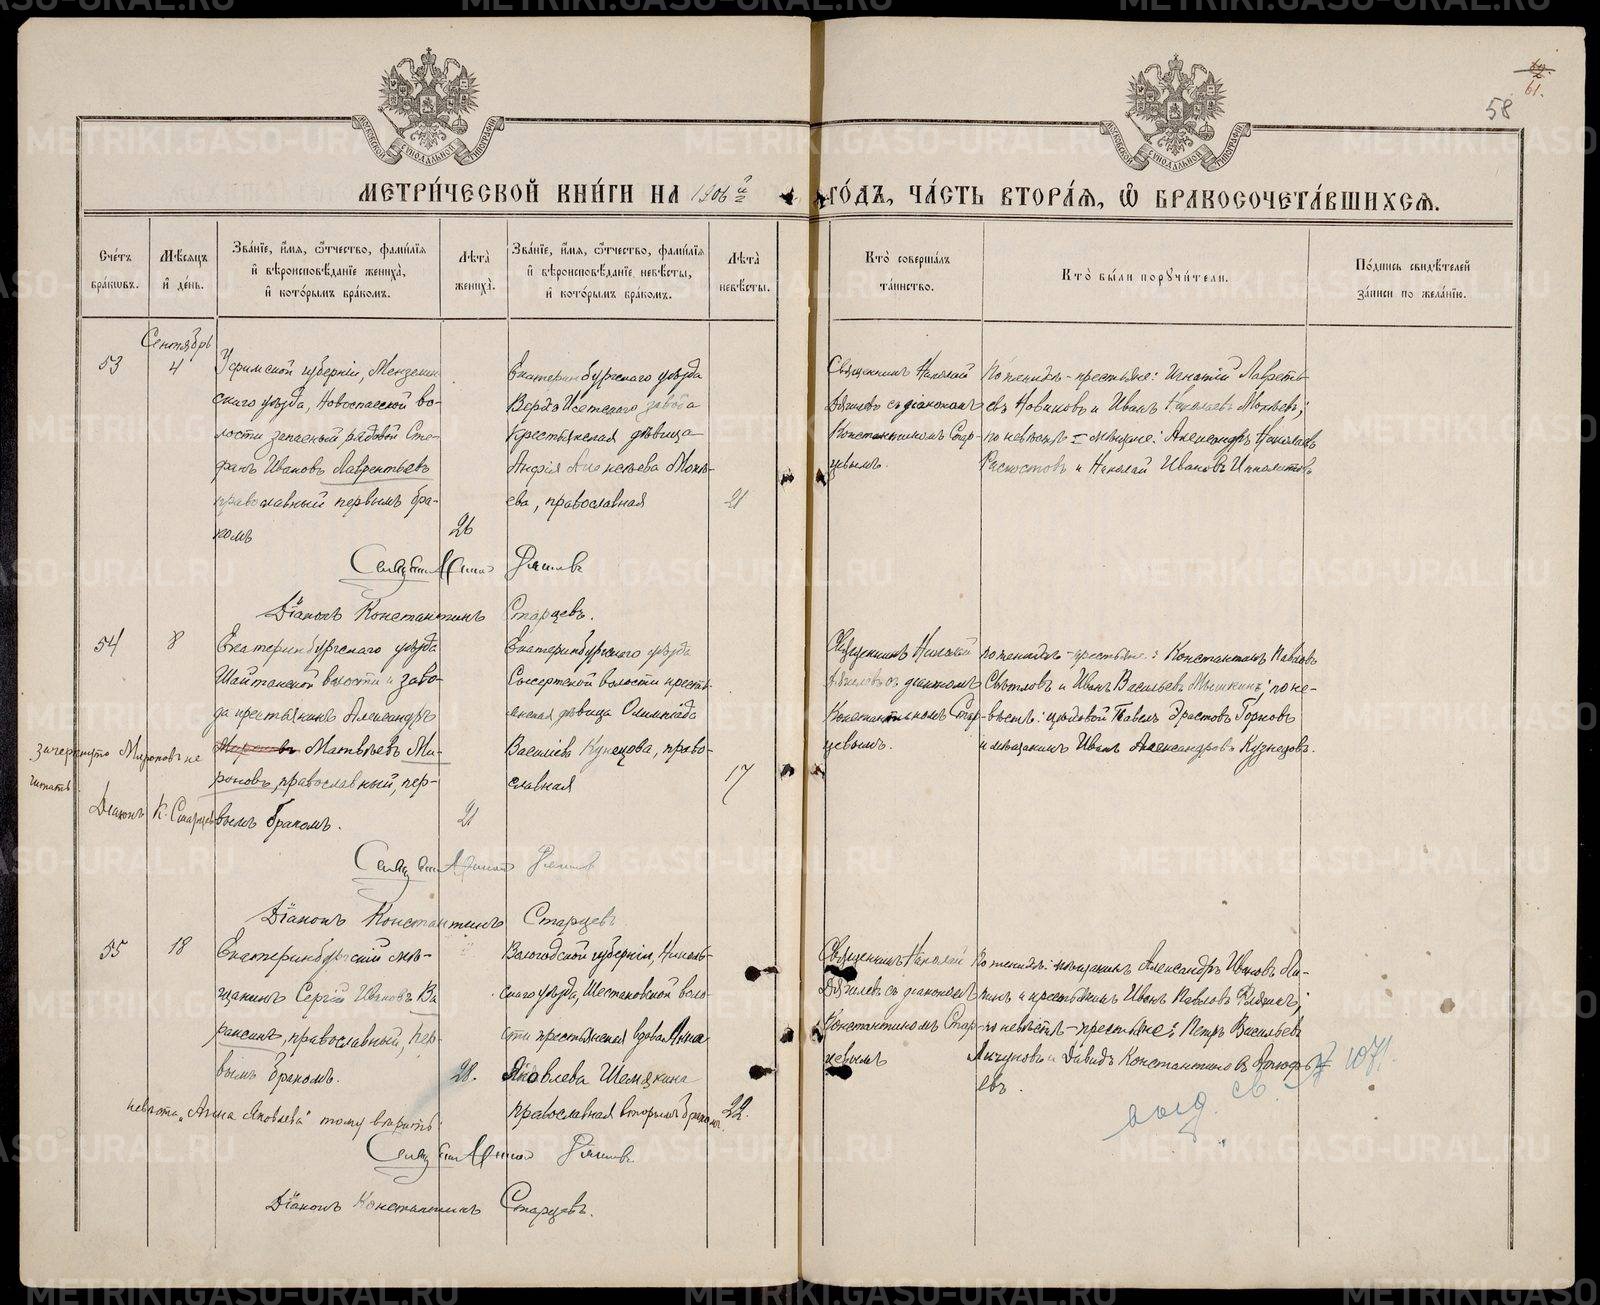 58
61.
МЕТРИЧЕСКОЙ КНИГИ НА 1906 й ГОДЪ, ЧАСТЬ ВТОРАЯ, Ѡ БРАКОСОЧЕТАВШИХСЯ.
Счетъ браковъ.
Мѣсяцъ и день.
Званіе, имя, ѿчество, фамилія
и вѣроисповѣданіе жениха,
и которымъ бракомъ.
Лѣта
жениха.
Званіе, имя, ѿчество, фамилія
и вѣроисповѣданіе невѣсты,
и которымъ бракомъ.
Лѣта
невѣсты.
Кто совершалъ
таинство.
Кто были поручители.
Подпись свидѣтелей
записи по желанію.
Сентябрь
53
4
Уфимской губерніи, Мензелин
скаго уѣзда, Новоспасской во-
лости запасный рядовой Сте-
фанъ Ивановъ Лаврентьевъ
православный первымъ бра-
комъ
26
Екатеринбургскаго уѣзда
Верхъ Исетскаго завода
крестьянская дѣвица
Алексѣева Моке-
ева, православная
21
Священникъ Николай
Дягилевъ съ діакономъ
Константиномъ Стар-
цевымъ.
По женихѣ - крестьяне: Игнатій Лавренть-
евъ Новиковъ и Иванъ Мокеевъ;
по невѣстѣ - мѣщане: Александръ Николаевъ
и Николай Ивановъ Ипполитовъ
Діаконъ Константинъ Старцевъ.
54
8
Екатеринбургскаго уѣзда
Шайтанской волости и заво-
да крестьянинъ Александръ
Мироновъ Матвѣевъ Ми-
роновъ, православный, пер-
вымъ бракомъ.
21
зачеркнуто Мироновъ не
читать
Діаконъ К. Старцевъ
Екатеринбургскаго уѣзда
Сысертской волости кресть-
янская дѣвица Олимпіада
Василіева Кузнецова, право-
славная
17
Священникъ Николай
Дягилевъ съ діакономъ
Константиномъ Стар-
цевымъ.
по женихѣ - крестьяне: Константинъ Павловъ
Свѣтловъ и Иванъ Васильевъ Мышкинъ; по не-
вѣстѣ: цеховой Павелъ Эрастовъ Горновъ
и мѣщанинъ Иванъ Александровъ Кузнецовъ.
Діаконъ Константинъ Старцевъ
55
18
Екатеринбургскій мѣ-
щанинъ Сергій Ивановъ Ва
раксинъ, православный, пер-
вымъ бракомъ.
28.
Вологодской губерніи, Николь-
скаго уѣзда, Шестаковской воло-
сти крестьянская вдова Анна
Яковлева Шемякина
православная вторымъ бракомъ.
22.
невѣста „Анна Яковлева" тому вѣрить
Священникъ Николай
Дягилевъ съ діакономъ
Константиномъ Стар-
цевымъ
По женихѣ: мѣщанинъ Александръ Ивановъ
и крестьянинъ Иванъ Павловъ
по невѣстѣ - крестьяне: Петръ Васильевъ
и Давидъ Константиновъ
евъ.
1071.
Діаконъ Константинъ Старцевъ.
METRIKI.GASO-URAL.RU